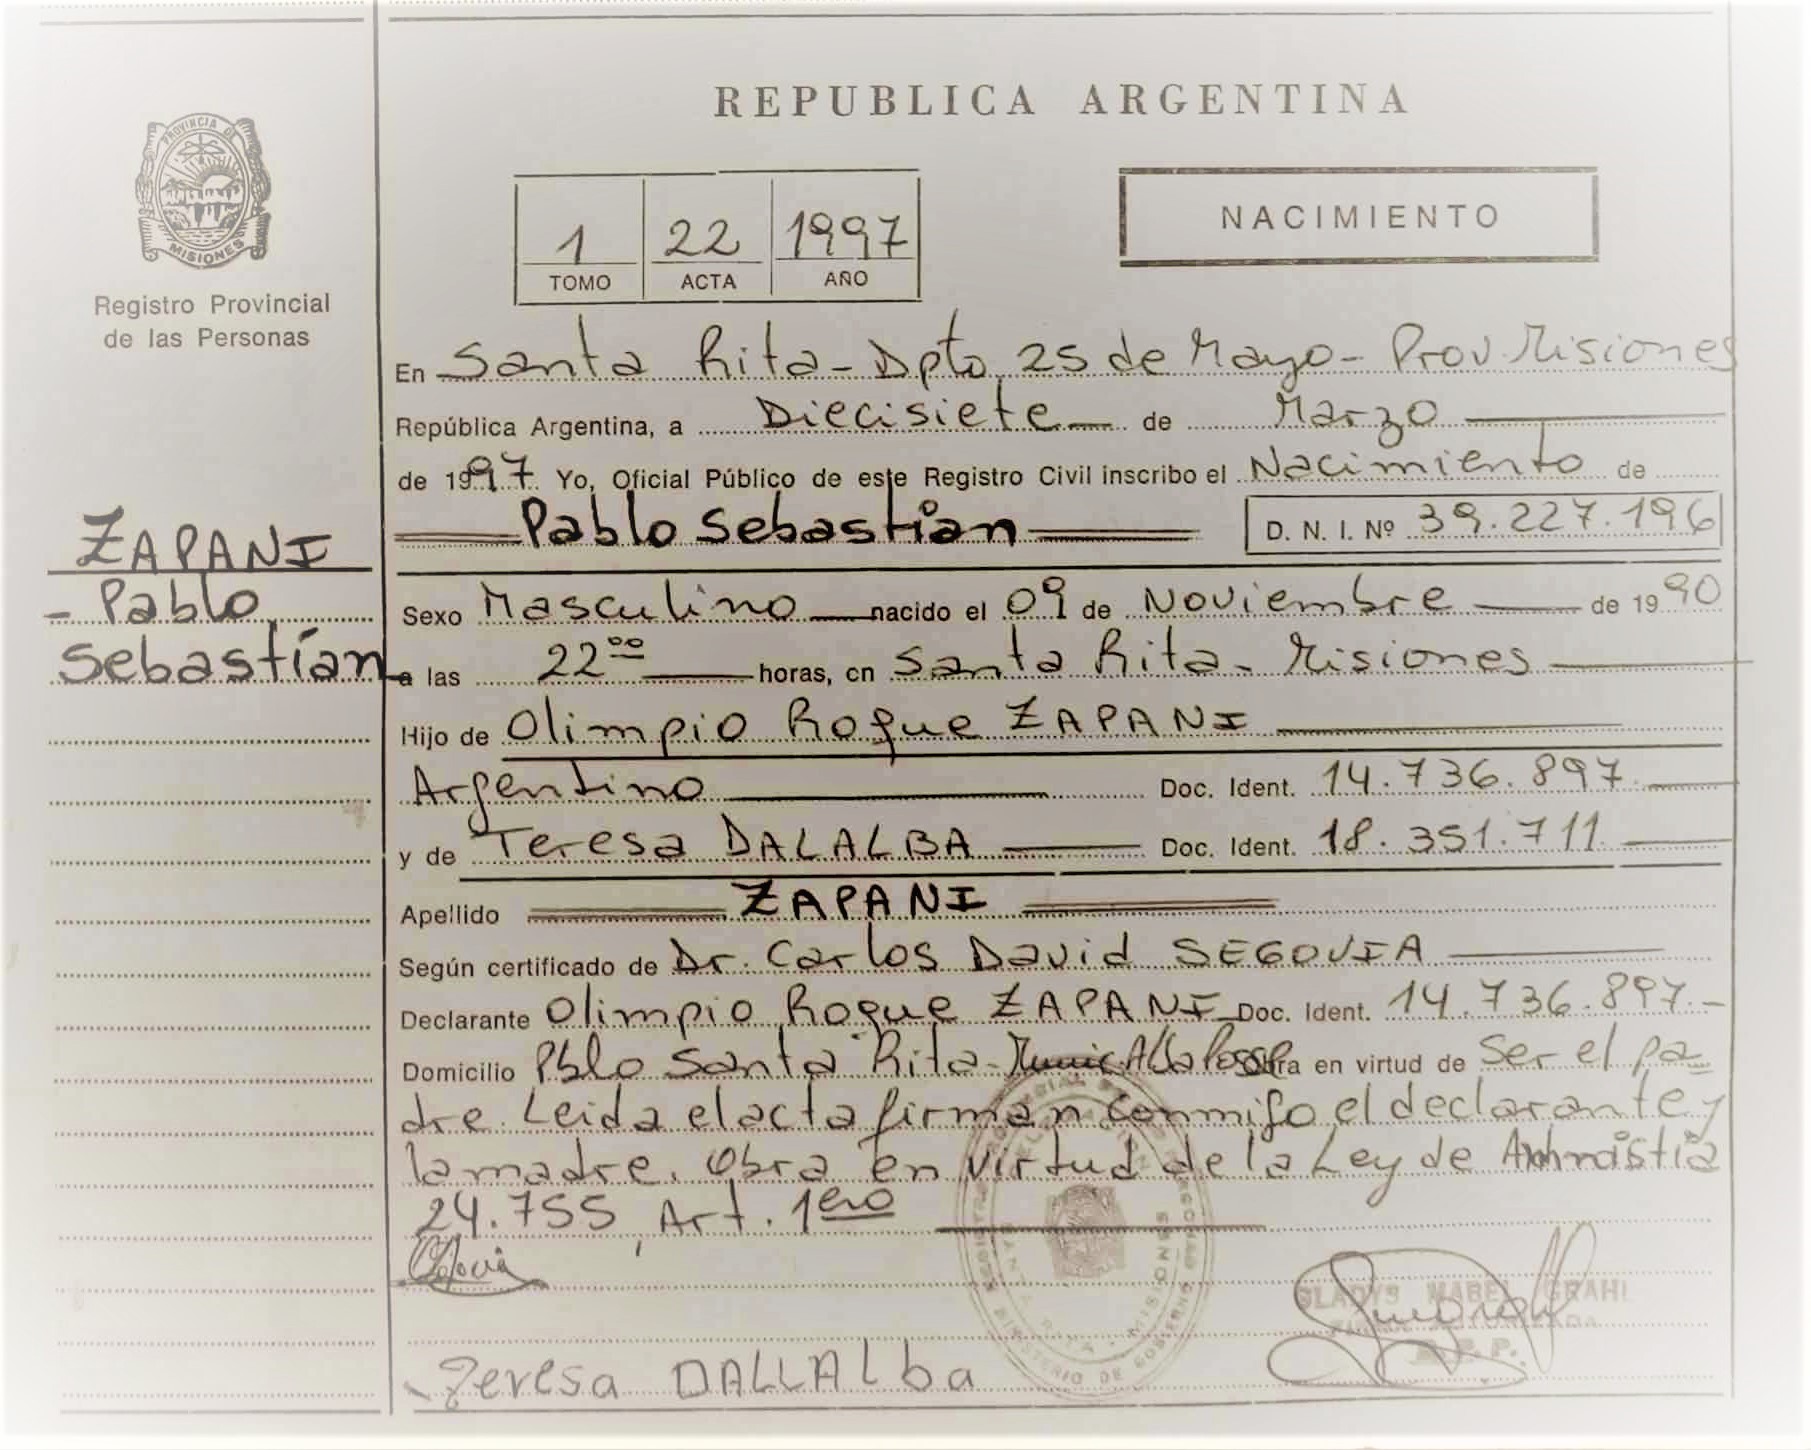 REPUBLICA ARGENTINA
PROVINCIA DE
MISIONES
Registro Provincial
de las Personas
1 22 1997
TOMO ACTA AÑO
NACIMIENTO
En Santa Rita - Dpto 25 de Mayo - Prov. Misiones
República Argentina, a Diecisiete de Marzo
de 1997 Yo, Oficial Público de este Registro Civil inscribo el Nacimiento de
Pablo Sebastían D. N. I. Nº 39.227.196
ZAPANI
- Pablo
Sebastían
Sexo Masculino nacido el 09 de Noviembre de 1990
a las 22 00 horas, en Santa Rita - Misiones
Hijo de Olimpio Roque ZAPANI
Argentino Doc. Ident. 14.736.897.
y de Teresa DALALBA Doc. Ident. 18.351.711.
Apellido ZAPANI
Según certificado de Dr. Carlos David SEGOVIA
Declarante Olimpio Roque ZAPANI Doc. Ident. 14.736.897.-
Domicilio Pblo Santa Rita - Obra en virtud de ser el pa
dre. Leida el acta firman conmigo el declarante y
la madre. Obra en virtud de la Ley de Amnistia
24.755, Art. 1ero
GLADYS MABEL GRAHL
R. P. P.
MINISTERIO DE GOBIERNO
Teresa DALLALba